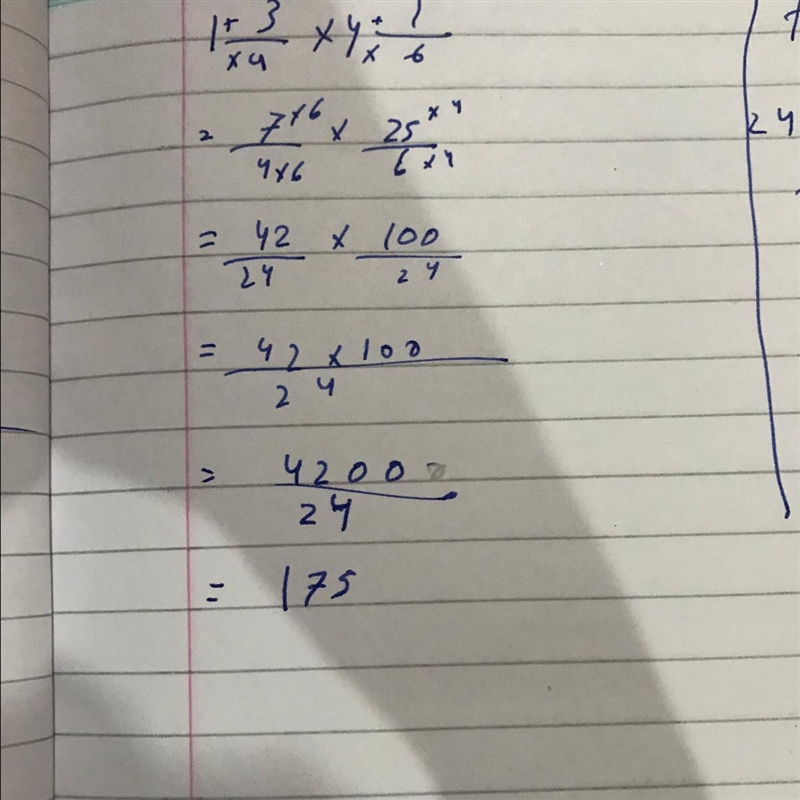 1 + 3/×4 × 4 + 1/× 6
= 7×6/4×6 × 25×4/6×4
= 42/24 × 100/24
= 42 × 100/24
= 4200/24
= 175
24